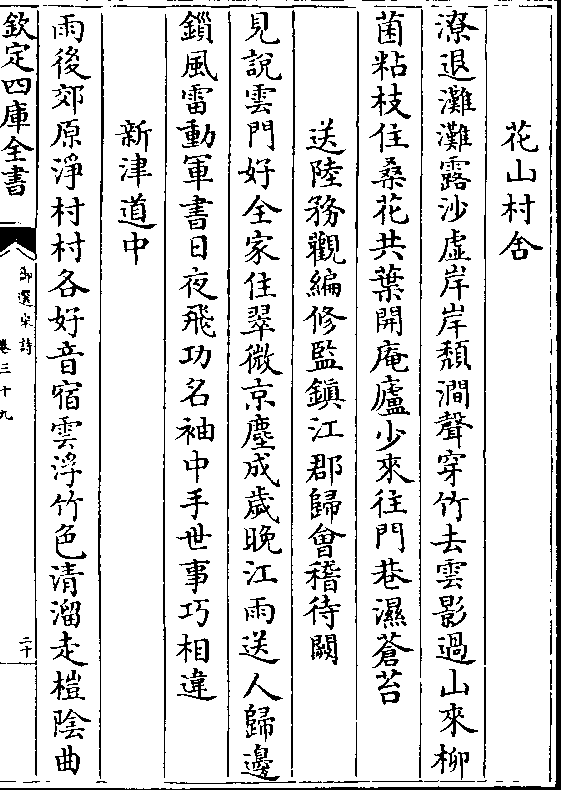 花山村舍
潦退灘灘露沙虛岸岸頽澗聲穿竹去雲影過山來柳
菌粘枝住桑花共葉開庵廬少來往門巷濕蒼苔
送陸務觀編修監鎮江郡歸會稽待闕
見說雲門好全家住翠微京塵成歲晚江雨送人歸邊
鎖風雷動軍書日夜飛功名袖中手世事巧相違
新津道中
雨後郊原淨村村各好音宿雲浮竹色清溜走榿陰曲
欽定四庫全書
御選宋詩
卷三十九
二十